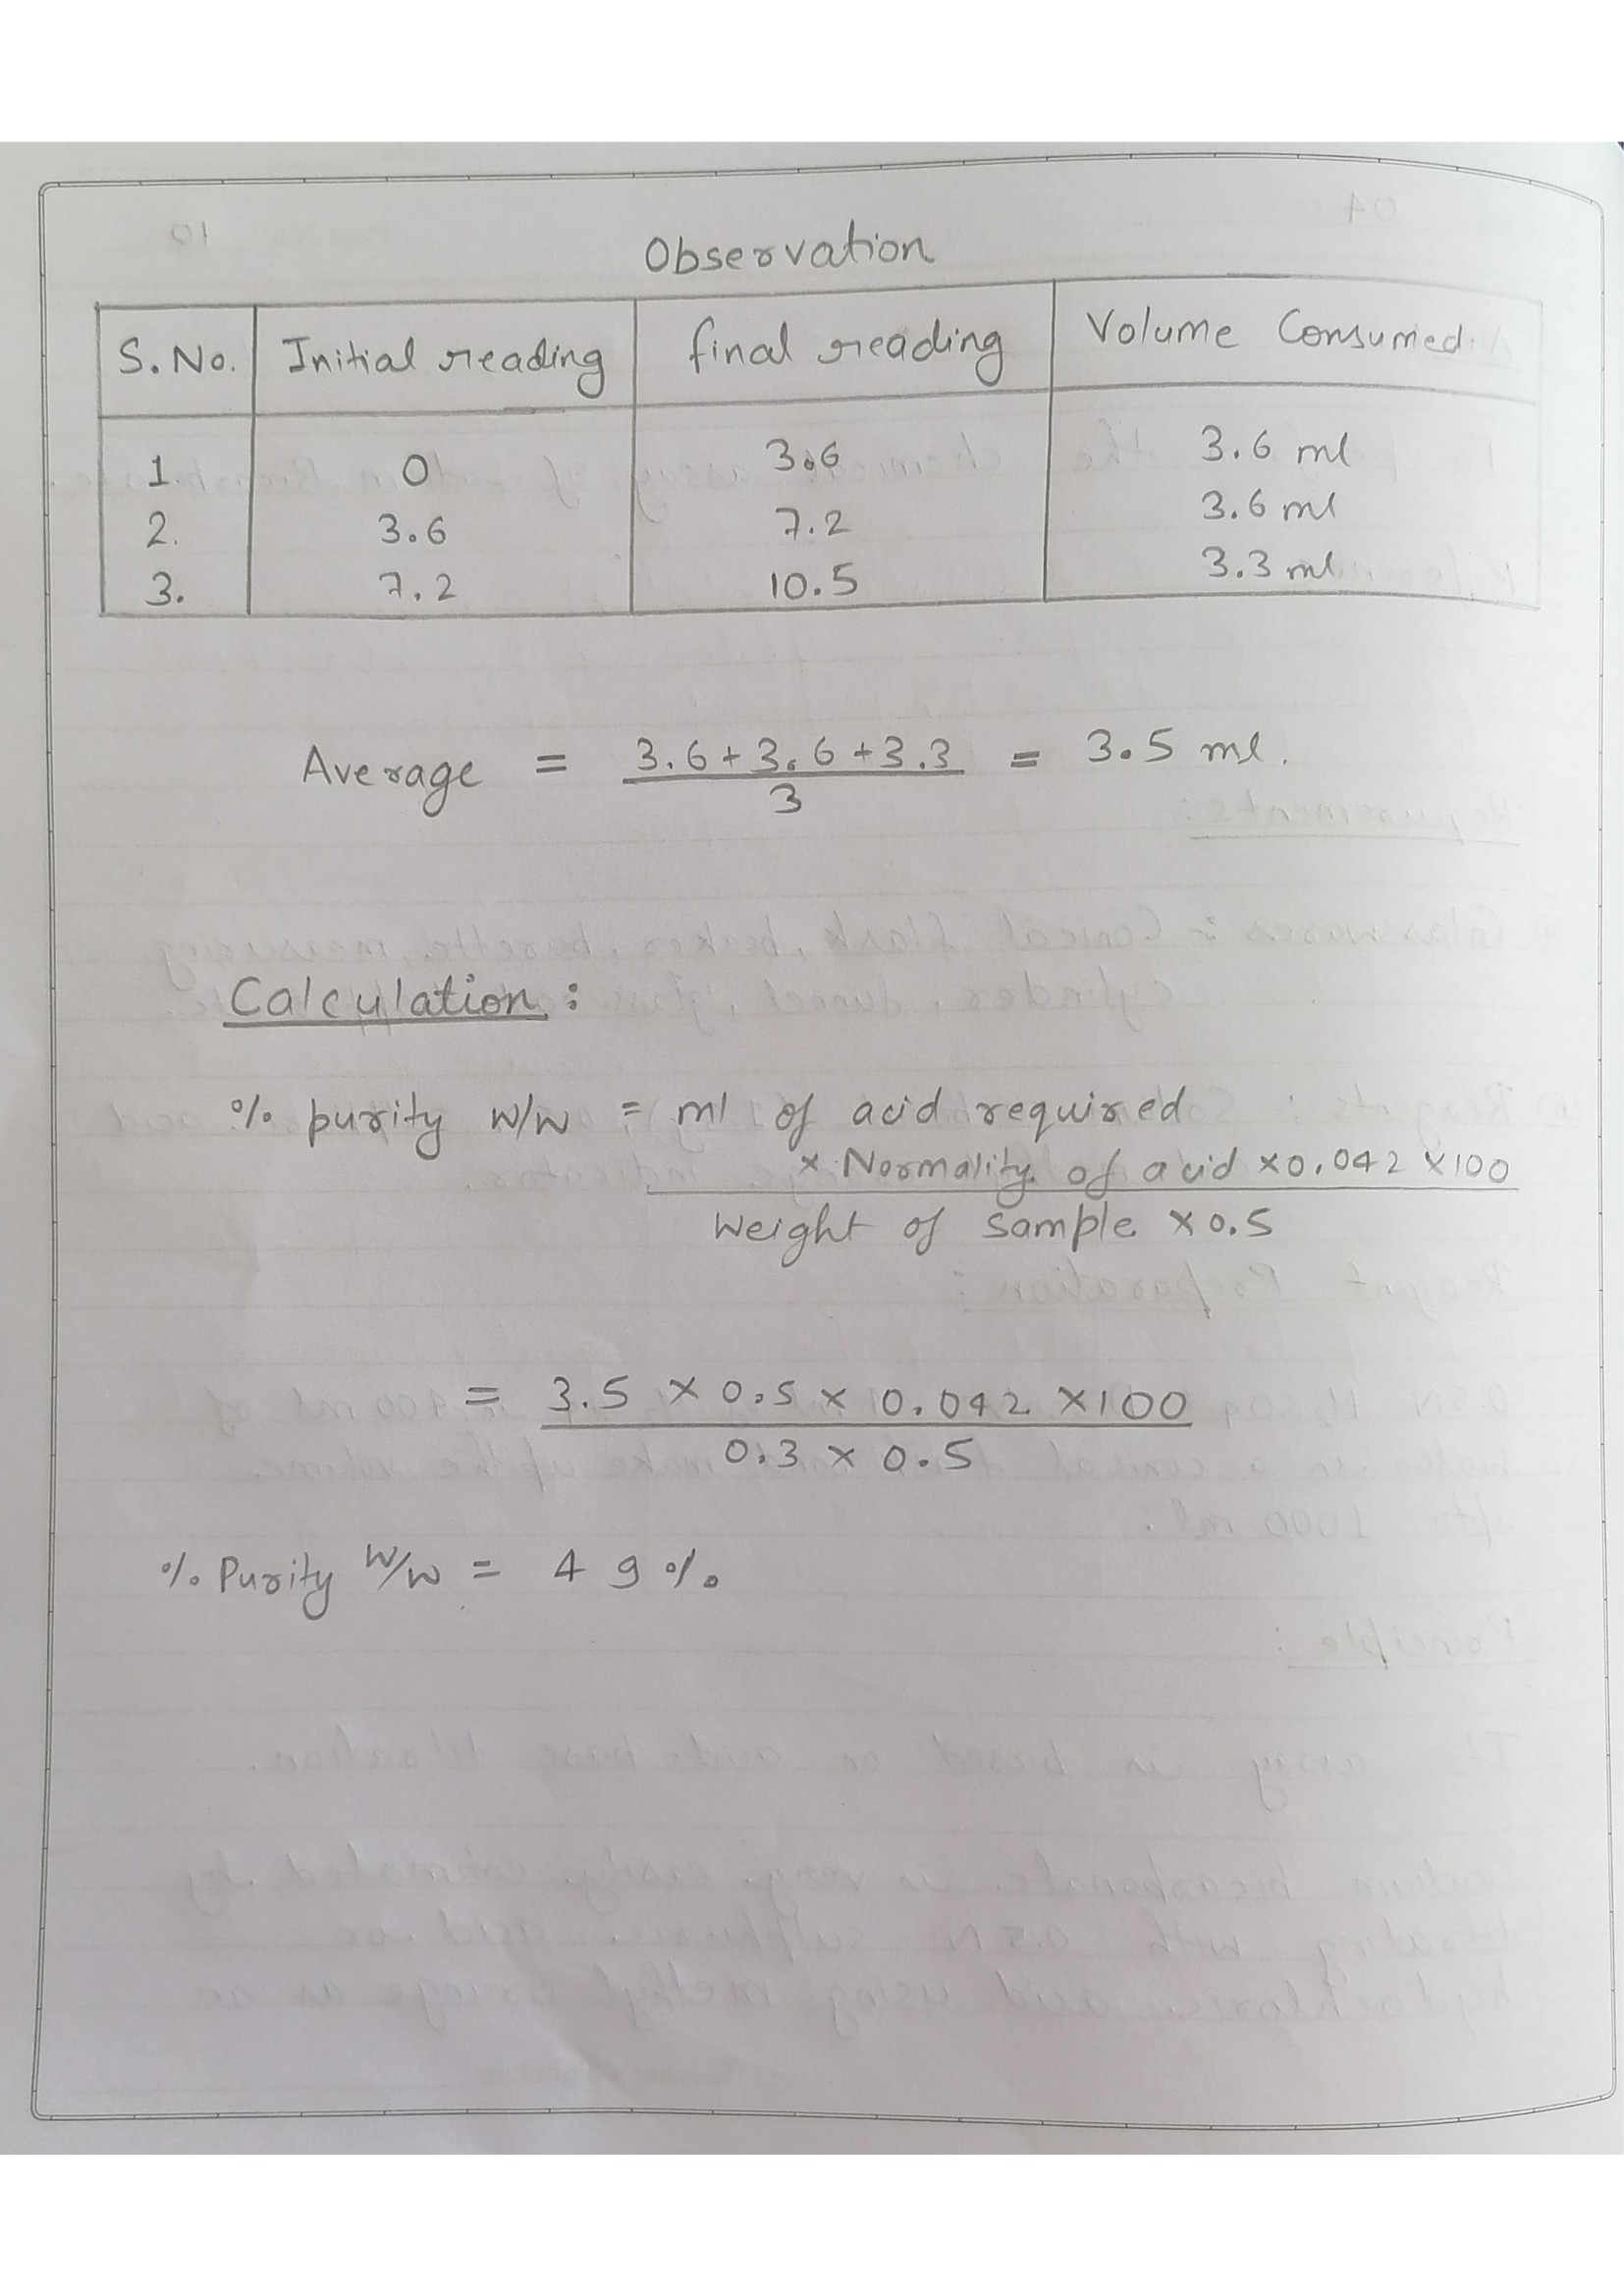 Observation
S. No. Initial reading final reading Volume Consumed
1. 0 3.6 3.6 ml
2. 3.6 7.2 3.6 ml
3. 7.2 10.5 3.3 ml
Average = 3.6+3.6+3.3 = 3.5 ml.
3
Calculation :
% purity w/w = ml of acid required
x Normality of acid x0.042 x100
Weight of sample x 0.5
= 3.5 x 0.5 x 0.042 x100
0.3 x 0.5
% Purity w/w = 49 %